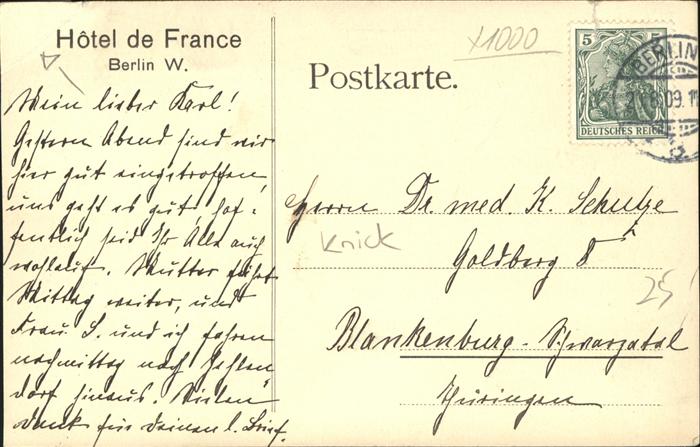 Hôtel de France
Berlin W.
Mein lieber Karl!
Gestern Abend sind wir
hier gut eingetroffen,
uns geht es gut, hof=
fentlich seid Ihr Alle auch
wohlauf. Mutter fährt
Mittag weiter, und
Frau S. und ich fahren
nachmittag nach Zehlen=
dorf hinaus. Vielen
Dank für deinen l. Brief.
x1000
Postkarte.
5 5
DEUTSCHES REICH
BERLIN
Herrn Dr. med. K. Schulze
Knick
Goldberg 8
25
Blankenburg-Schwarzatal
Thüringen